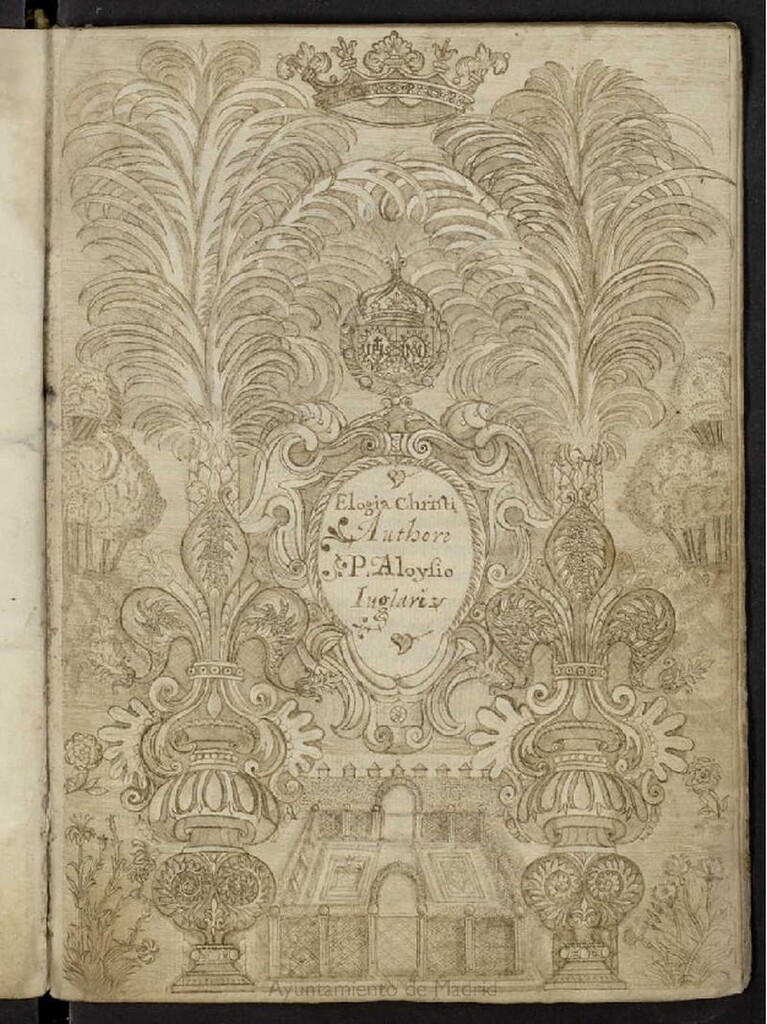 Elogia Christi
Authore
P. Aloysio
Iuglaris
Ayuntamiento de Madrid